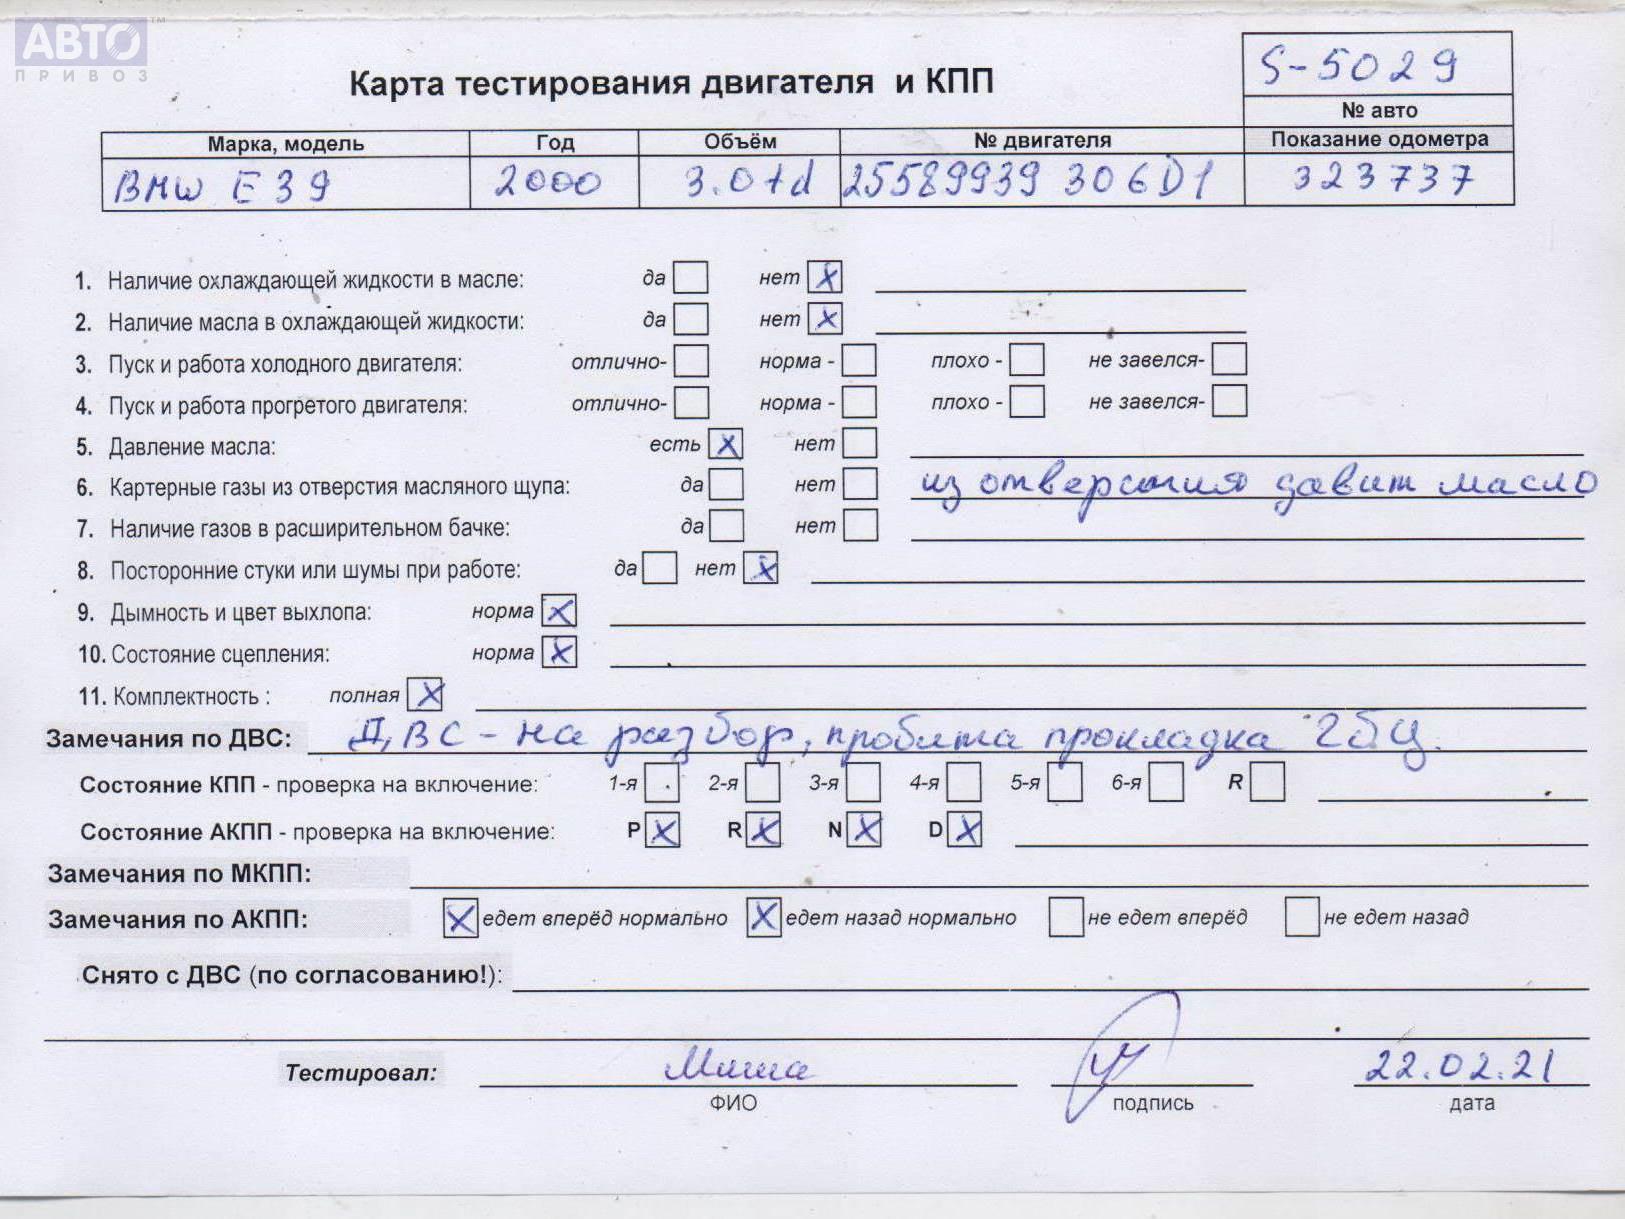 АВТО ™
ПРИВОЗ
S-5029
Карта тестирования двигателя и КПП
№ авто
Марка, модель Год Объём № двигателя Показание одометра
BMW E39 2000 3.0td 25589939 306D1 323737
1. Наличие охлаждающей жидкости в масле: да нет X
2. Наличие масла в охлаждающей жидкости: да нет X
3. Пуск и работа холодного двигателя: отлично- норма - плохо - не завелся-
4. Пуск и работа прогретого двигателя: отлично- норма - плохо - не завелся-
5. Давление масла: есть X нет
6. Картерные газы из отверстия масляного щупа: да нет из отверстия давит масло
7. Наличие газов в расширительном бачке: да нет
8. Посторонние стуки или шумы при работе: да нет X
9. Дымность и цвет выхлопа: норма X
10. Состояние сцепления: норма X
11. Комплектность : полная X
Замечания по ДВС: ДВС - на разбор, пробита прокладка ГБЦ.
Состояние КПП - проверка на включение: 1-я 2-я 3-я 4-я 5-я 6-я R
Состояние АКПП - проверка на включение: P X R X N X D X
Замечания по МКПП:
Замечания по АКПП: X едет вперёд нормально X едет назад нормально не едет вперёд не едет назад
Снято с ДВС (по согласованию!):
Тестировал: Миша 22.02.21
ФИО подпись дата